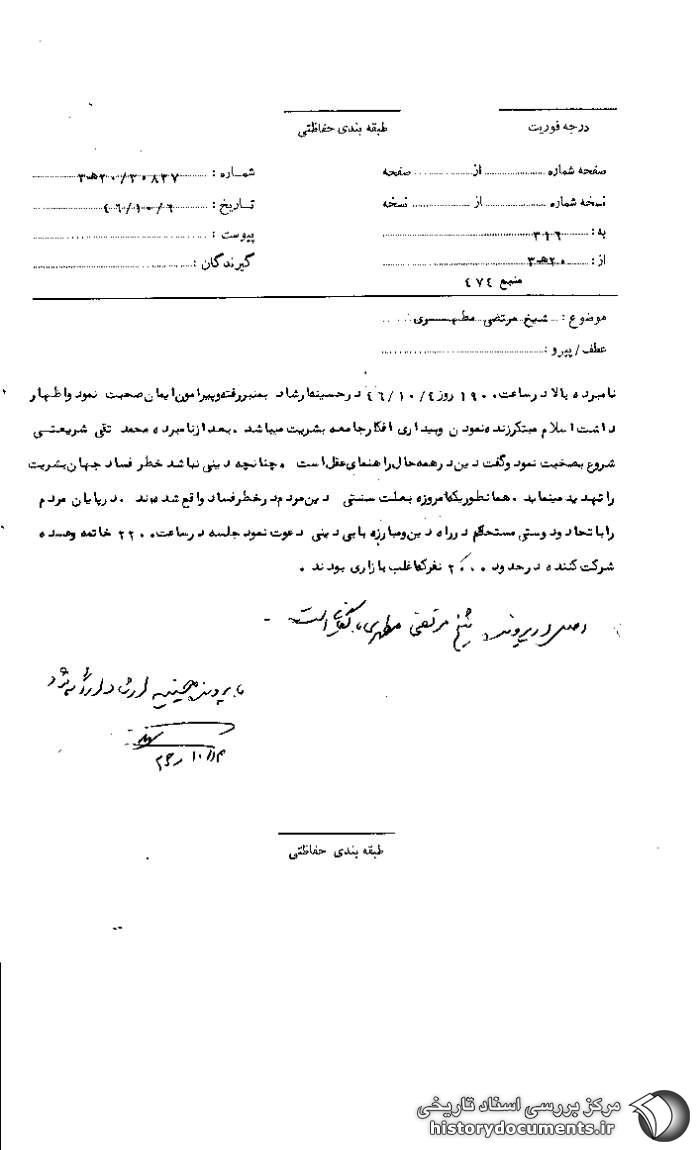 درجه فوریت
طبقه بندی حفاظتی
صفحه شماره ........ از ........ صفحه
شماره : ۲۰/۲۰۸۳۷ﻫ۳
نسخه شماره ........ از ........ نسخه
تاریخ : ۴۶/۱۰/۶
به : ۳۱۶
پیوست :
از : ۲۰ﻫ۳
گیرندگان :
منبع ۴۷۴
موضوع : شیخ مرتضی مطهری
عطف / پیرو :
نامبرده بالا در ساعت ۱۹۰۰ روز ۴۶/۱۰/۴ در حسینه ارشاد بمنبر رفته و پیرامون ایمان صحبت نمود و اظهار
داشت اسلام مبتکر زنده نمودن و بیداری افکار جامعه بشریت میباشد . بعد از نامبرده محمد تقی شریعتی
شروع بصحبت نمود و گفت دین در همه حال راهنمای عقل است . چنانچه دینی نباشد خطر فساد جهان بشریت
را تهدید مینماید . همانطوریکه امروزه بعلت سستی دین مردم در خطر فساد واقع شده‌اند . در پایان مردم
را باتحاد و دوستی مستحکم در راه دین و مبارزه با بی دینی دعوت نمود جلسه در ساعت ۲۲۰۰ خاتمه و عده
شرکت کننده در حدود ۲۰۰۰ نفر که اغلب بازاری بودند .
اصل در پرونده شیخ مرتضی مطهری بایگانی است
پرونده حسینیه ارشاد
۱۰
طبقه بندی حفاظتی
مرکز بررسی اسناد تاریخی
historydocuments.ir